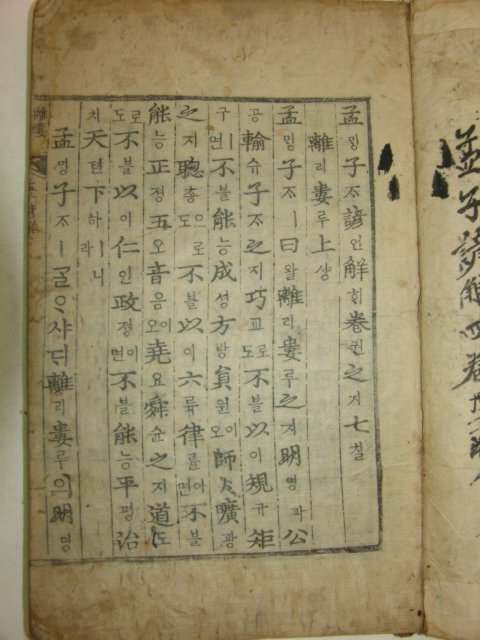 孟子諺解 四卷
孟밍子ᄌᆞ諺언解ᄒᆡ卷권之지七칠
離리婁루上샹
孟밍子ᄌᆞㅣ曰왈離리婁루之지明명과公
공輸슈子ᄌᆞ之지巧교로도不불以이規규矩
구ㅣ면不불能능成셩方방員원이오師ᄉᆞ曠광
之지聰총으로도不불以이六륙律률이면不불
能능正졍五오音음이오堯요舜슌之지道도
로도不불以이仁인政졍이면不불能능平평治
치天텬下하ㅣ니라
孟밍子ᄌᆞㅣᄀᆞᆯᄋᆞ샤ᄃᆡ離리婁루의明명
離婁